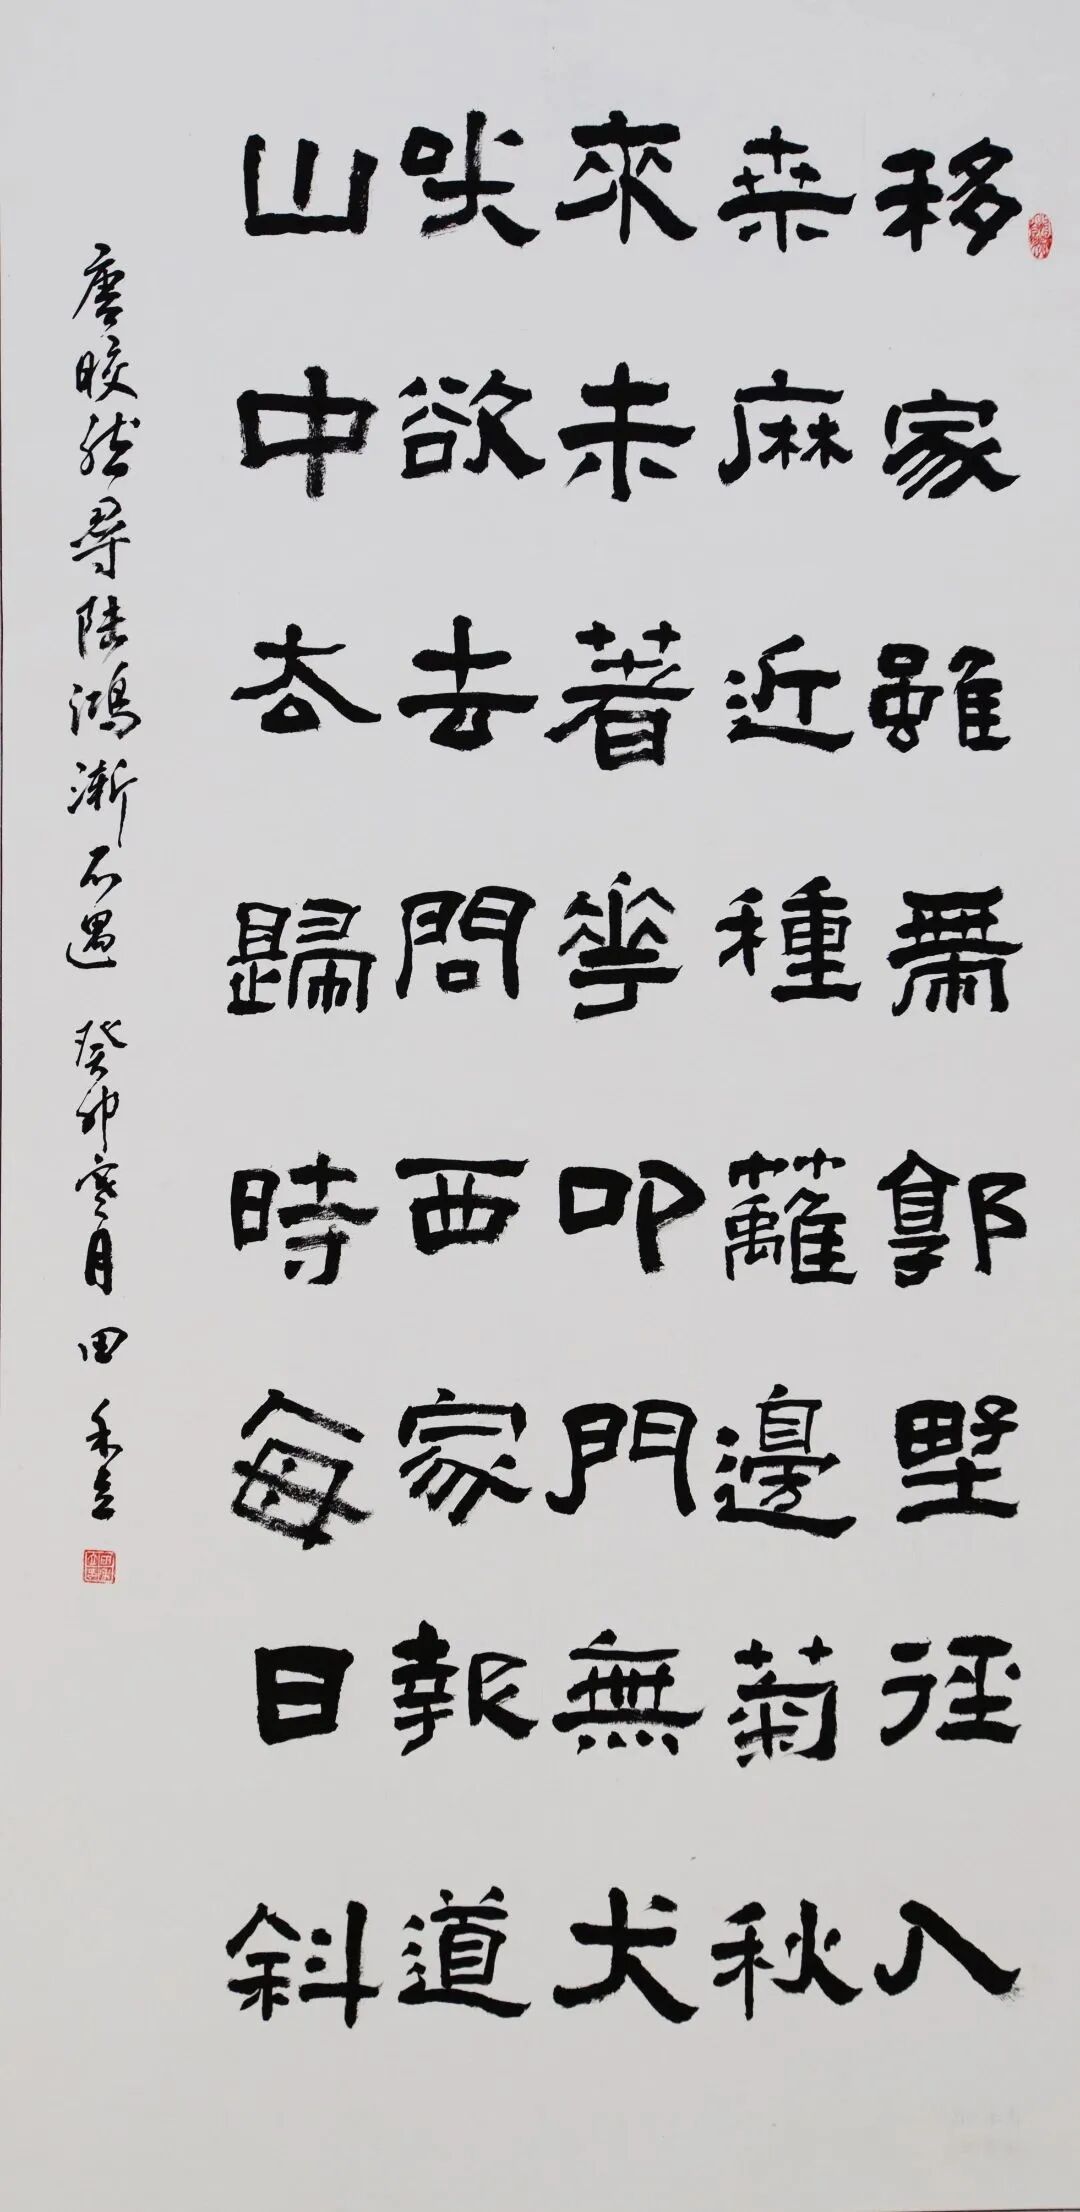 移家雖帶郭野徑入
桒麻近種籬邊菊秋
來未著華叩門無犬
吠欲去問西家報道
山中厺歸時每日斜
唐晈然尋陸鴻漸不遇 癸卯寒月 田禾立